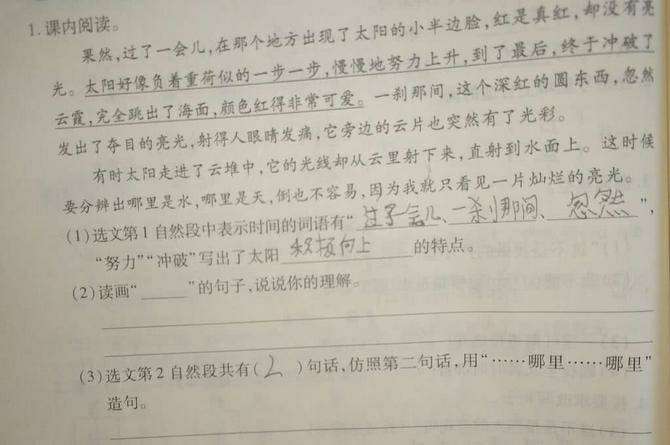 1.课内阅读。
果然,过了一会儿,在那个地方出现了太阳的小半边脸,红是真红,却没有亮
光。太阳好像负着重荷似的一步一步,慢慢地努力上升,到了最后,终于冲破了
云霞,完全跳出了海面,颜色红得非常可爱。一刹那间,这个深红的圆东西,忽然
发出了夺目的亮光,射得人眼睛发痛,它旁边的云片也突然有了光彩。
有时太阳走进了云堆中,它的光线却从云里射下来,直射到水面上。这时候
要分辨出哪里是水,哪里是天,倒也不容易,因为我就只看见一片灿烂的亮光。
(1)选文第1自然段中表示时间的词语有“过了一会儿、一刹那间、忽然”,
“努力”“冲破”写出了太阳 积极向上 的特点。
(2)读画“____”的句子,说说你的理解。
(3)选文第2自然段共有( 2 )句话,仿照第二句话,用“……哪里……哪里”
造句。